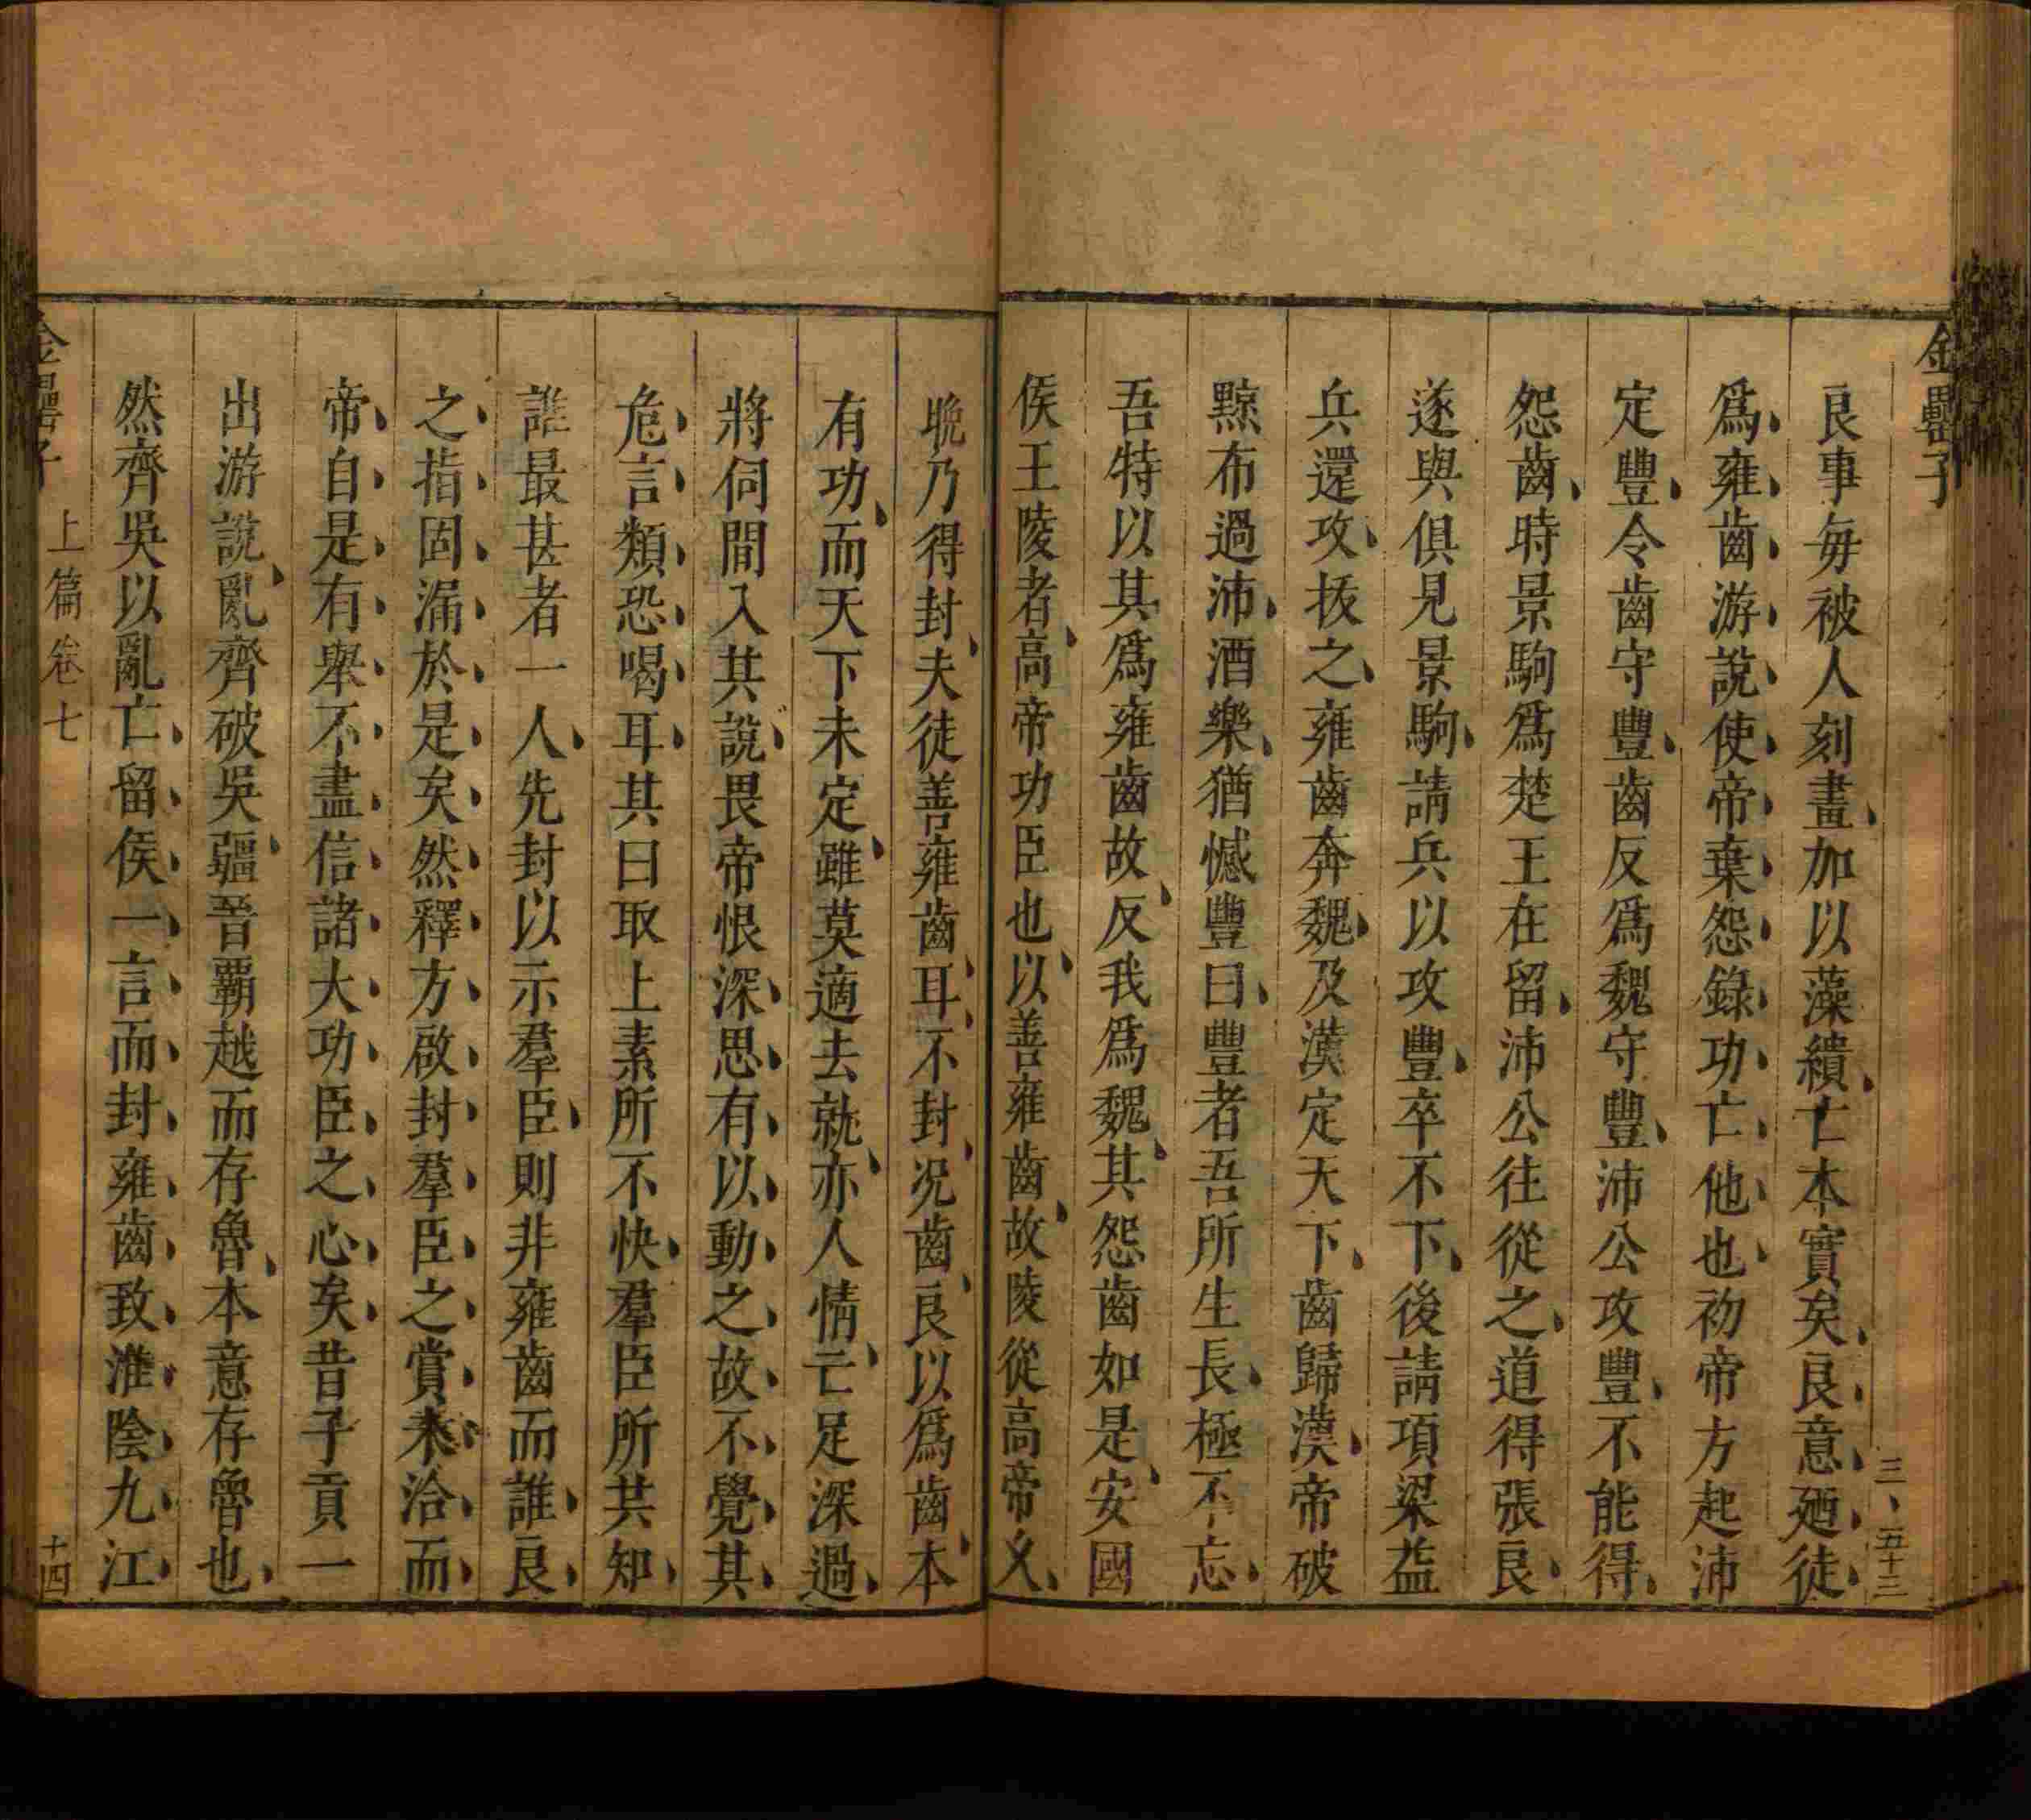 金罍子
三、五十三
良事每被人刻畫加以藻繢亡本實矣良意廼徒
爲雍齒游說使帝棄怨錄功亡他也初帝方起沛
定豐令齒守豐齒反爲魏守豐沛公攻豐不能得
怨齒時景駒爲楚王在留沛公往從之道得張良
遂與俱見景駒請兵以攻豐卒不下後請項梁益
兵還攻拔之雍齒奔魏及漢定天下齒歸漢帝破
黥布過沛酒樂猶憾豐曰豐者吾所生長極不忘
吾特以其爲雍齒故反我爲魏其怨齒如是安國
侯王陵者高帝功臣也以善雍齒故陵從高帝乂
晩乃得封夫徒善雍齒耳不封况齒良以爲齒本
有功而天下未定雖莫適去就亦人情亡足深過
將伺間入其說畏帝恨深思有以動之故不覺其
危言類恐喝耳其曰取上素所不快羣臣所共知
誰最甚者一人先封以示羣臣則非雍齒而誰良
之指固漏於是矣然釋方啟封羣臣之賞未洽而
帝自是有舉不盡信諸大功臣之心矣昔子貢一
出游說亂齊破吳疆晉覇越而存魯本意存魯也
然齊吳以亂亡留侯一言而封雍齒致淮陰九江
金罍子
上篇卷七
十四